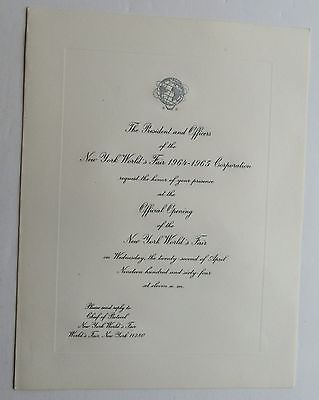 The President and Officers
of the
New York World's Fair 1964-1965 Corporation
request the honor of your presence
at the
Official Opening
of the
New York World's Fair
on Wednesday, the twenty-second of April
Nineteen hundred and sixty-four
at eleven a.m.
Please send reply to
Chief of Protocol
New York World's Fair
World's Fair, New York 11380